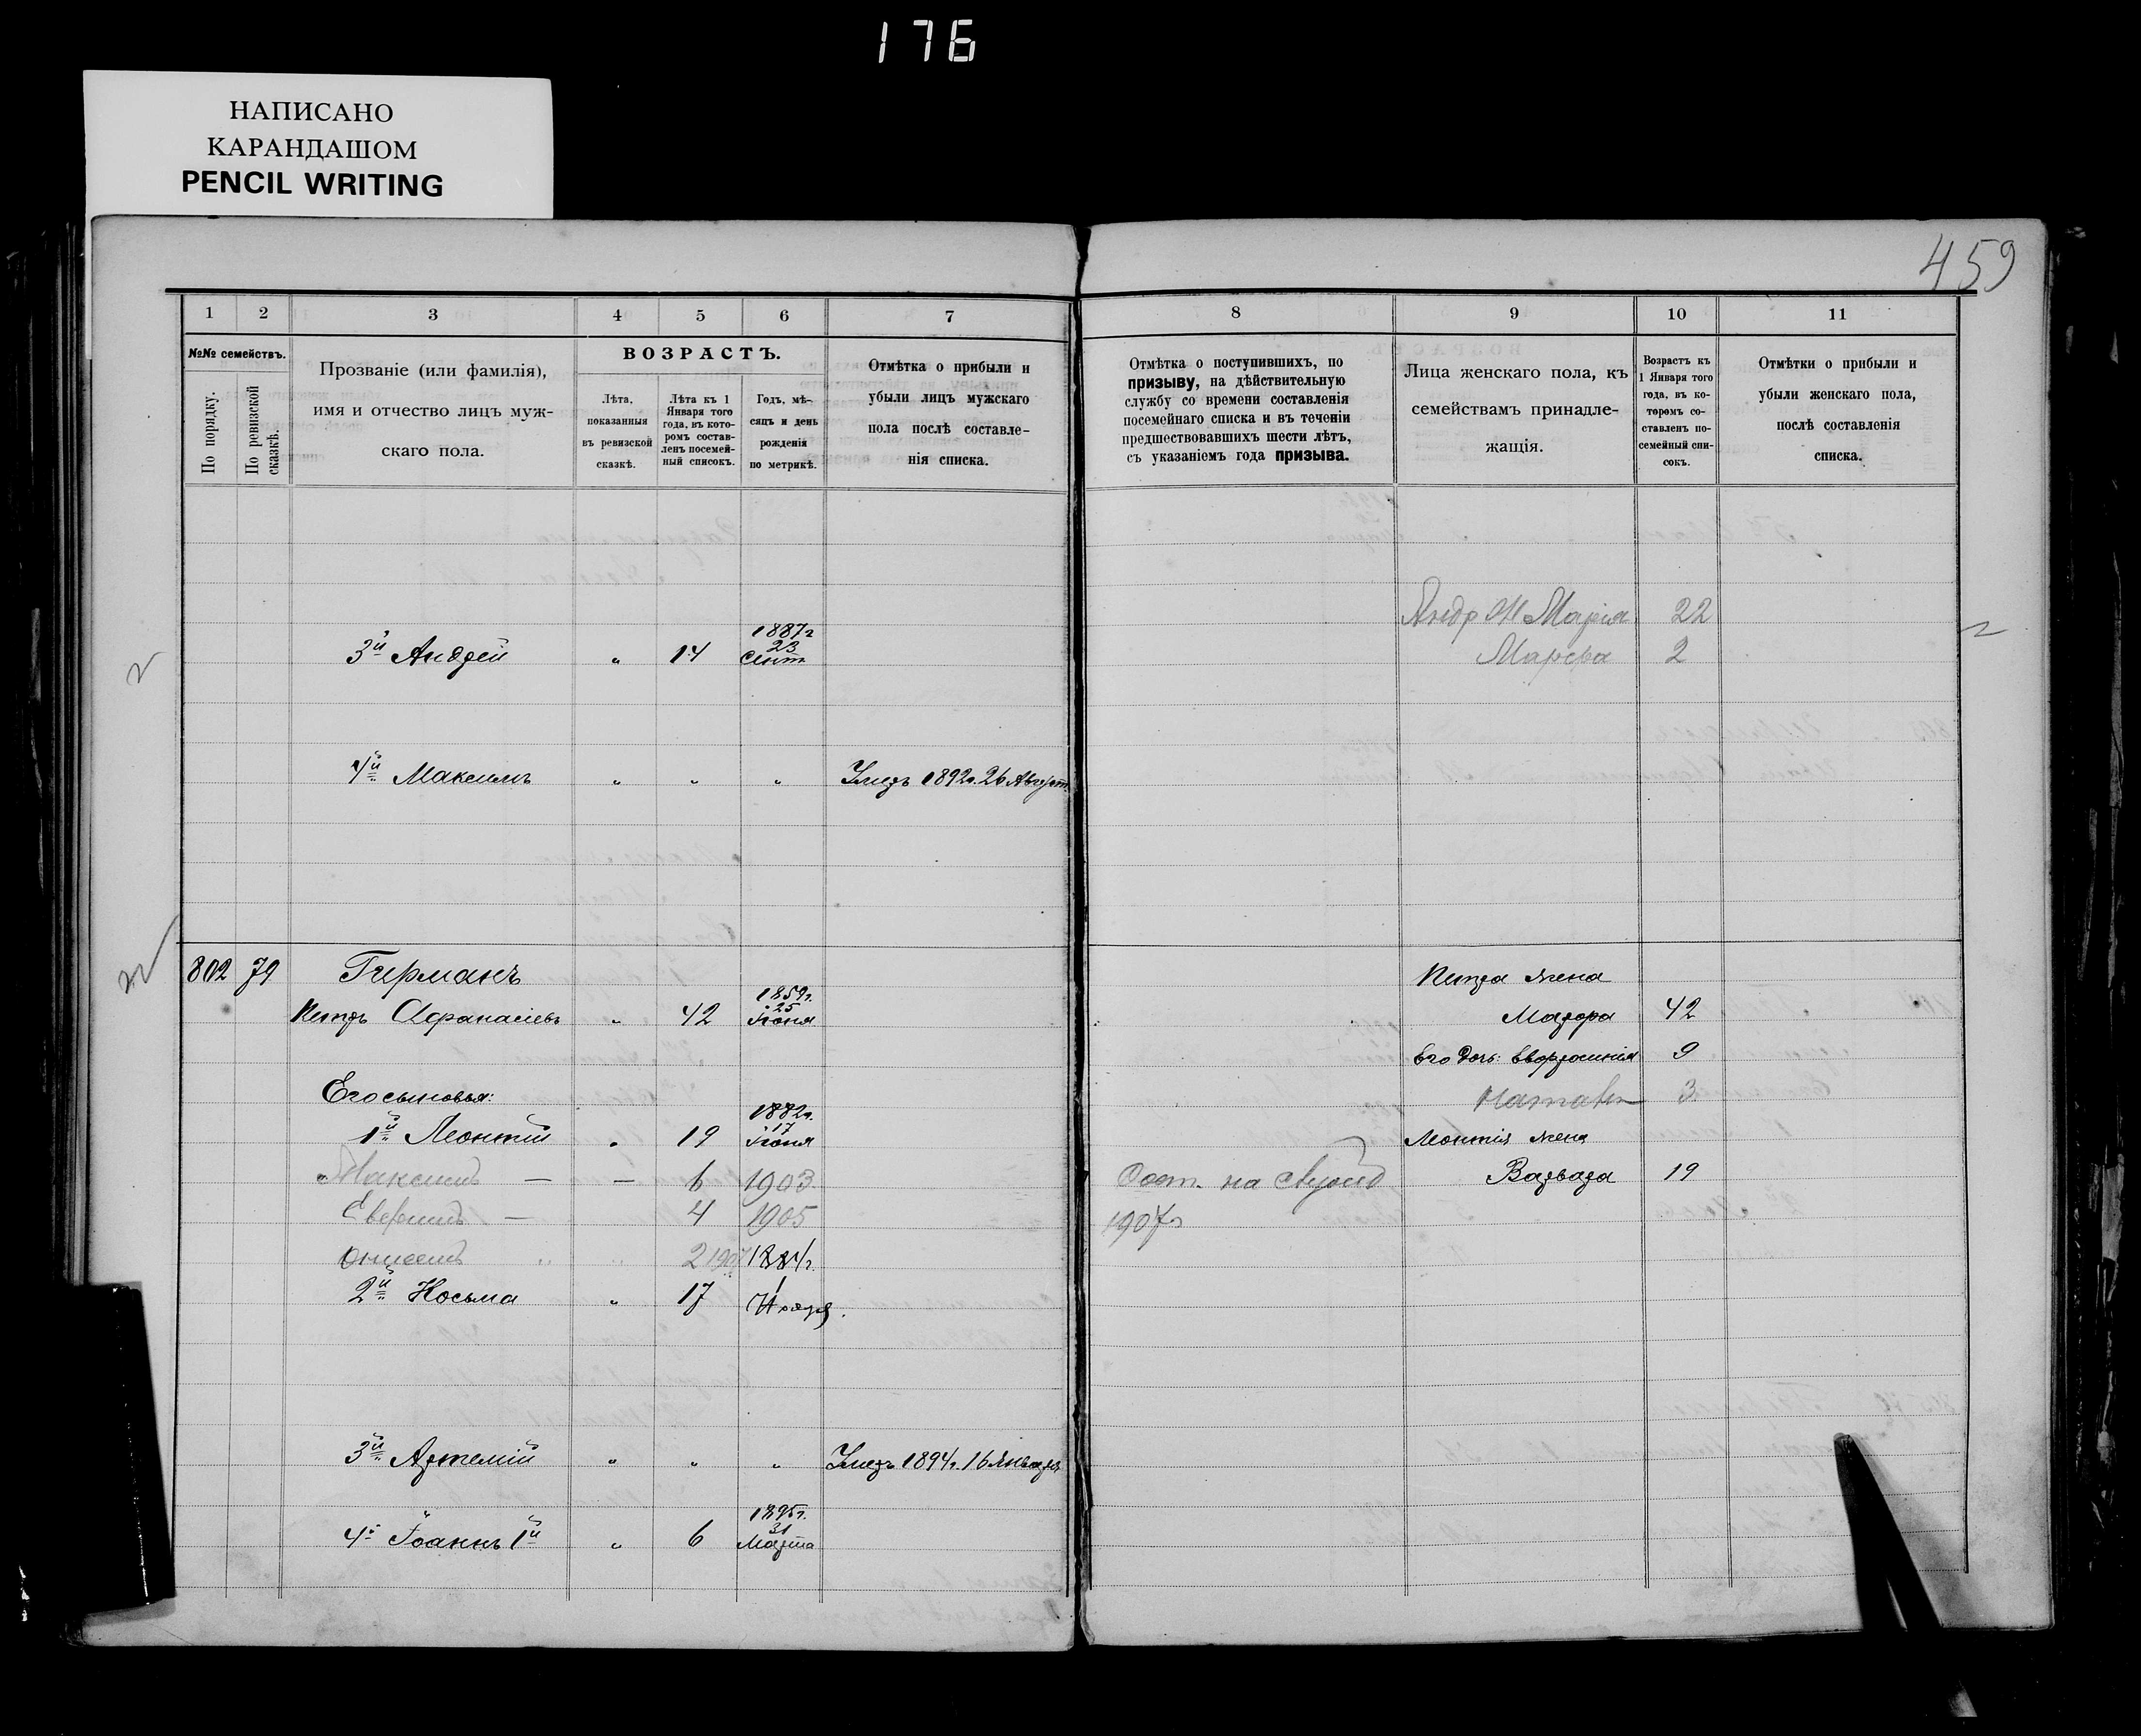 176
НАПИСАНО
КАРАНДАШОМ
PENCIL WRITING
459
1 2 3 4 5 6 7
№№ семействъ.
По порядку.
По ревизской сказкѣ.
Прозваніе (или фамилія),
имя и отчество лицъ муж-
скаго пола.
ВОЗРАСТЪ.
Лѣта,
показанныя
въ ревизской
сказкѣ.
Лѣта къ 1
Января того
года, въ кото-
ромъ состав-
ленъ посемей-
ный списокъ.
Годъ, мѣ-
сяцъ и день
рожденія
по метрикѣ.
Отмѣтка о прибыли и
убыли лицъ мужскаго
пола послѣ составле-
нія списка.
1887г
23
3й Андрей " 14 Сент
4й Максимъ " " " Умеръ 1892г. 26 Август.
802 79 Германъ
1859г.
25
Петръ Афанасіевъ " 42 Іюня
Его сыновья:
1882г.
17
1й Леонтій " 19 Іюня
Максимъ — — 6 1903
— 4 1905
Онисимъ " " 2 1907 1884г.
1
2й Косьма " 17 Ноября.
3й Артемій " " " Умеръ 1894г. 16 Января
1895г.
31
4й Іоаннъ 1й " 6 Марта
8 9 10 11
Отмѣтка о поступившихъ, по
призыву, на дѣйствительную
службу со времени составленія
посемейнаго списка и въ теченіи
предшествовавшихъ шести лѣтъ,
съ указаніемъ года призыва.
Лица женскаго пола, къ
семействамъ принадле-
жащія.
Возрастъ къ
1 Января того
года, въ ко-
торомъ со-
ставленъ по-
семейный спи-
сокъ.
Отмѣтки о прибыли и
убыли женскаго пола,
послѣ составленія
списка.
Андр Ж Марія 22
Марфа 2
Петра жена
Мавра 42
Его дочь: Евфросинія 9
3
Леонтія жена
на Варвара 19
1907г